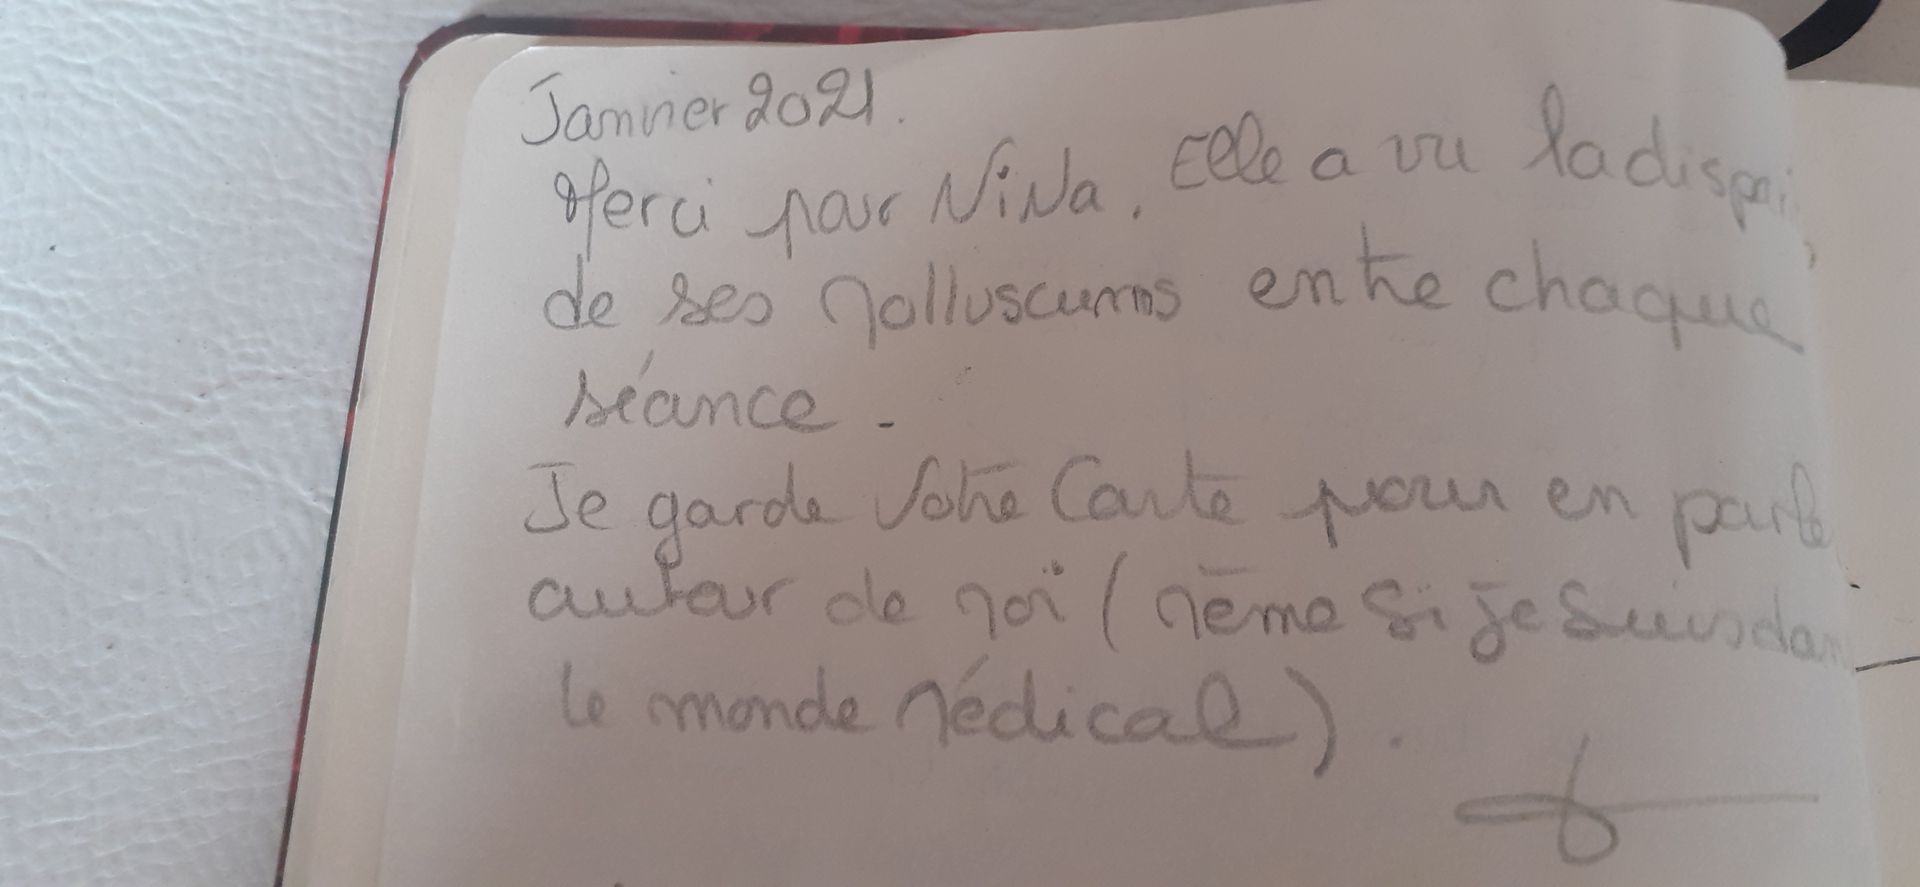 Janvier 2021.
Merci pour NiNa. Elle a vu la dispari
de ses Molluscums entre chaque
séance.
Je garde Votre Carte pour en parle
autour de Moi (Même si je suis dan
le monde Médical).